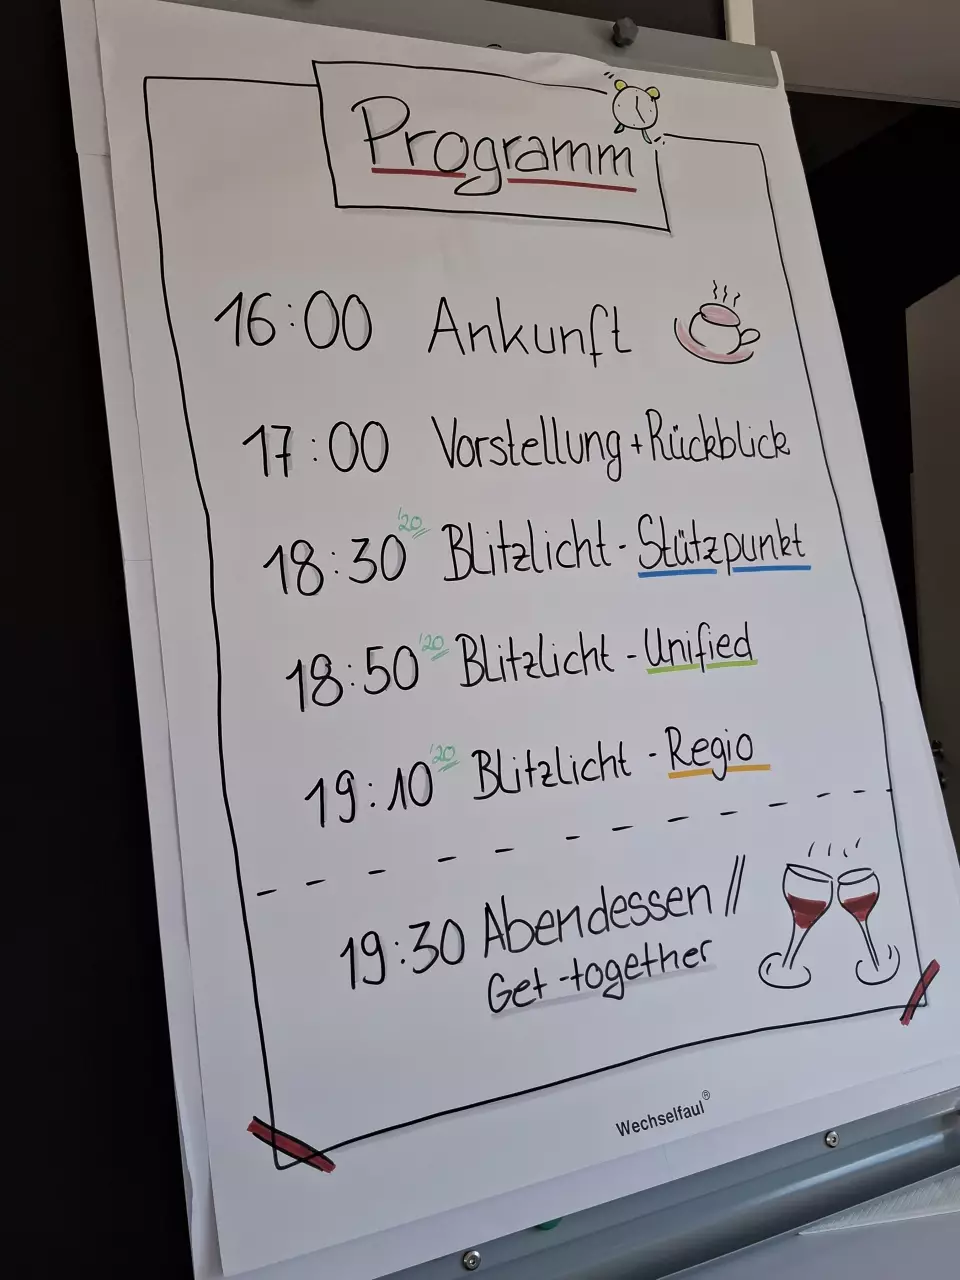 Programm
16:00 Ankunft
17:00 Vorstellung + Rückblick
18:30 '20 Blitzlicht - Stützpunkt
18:50 '20 Blitzlicht - Unified
19:10 '20 Blitzlicht - Regio
19:30 Abendessen //
Get-together
Wechselfaul®